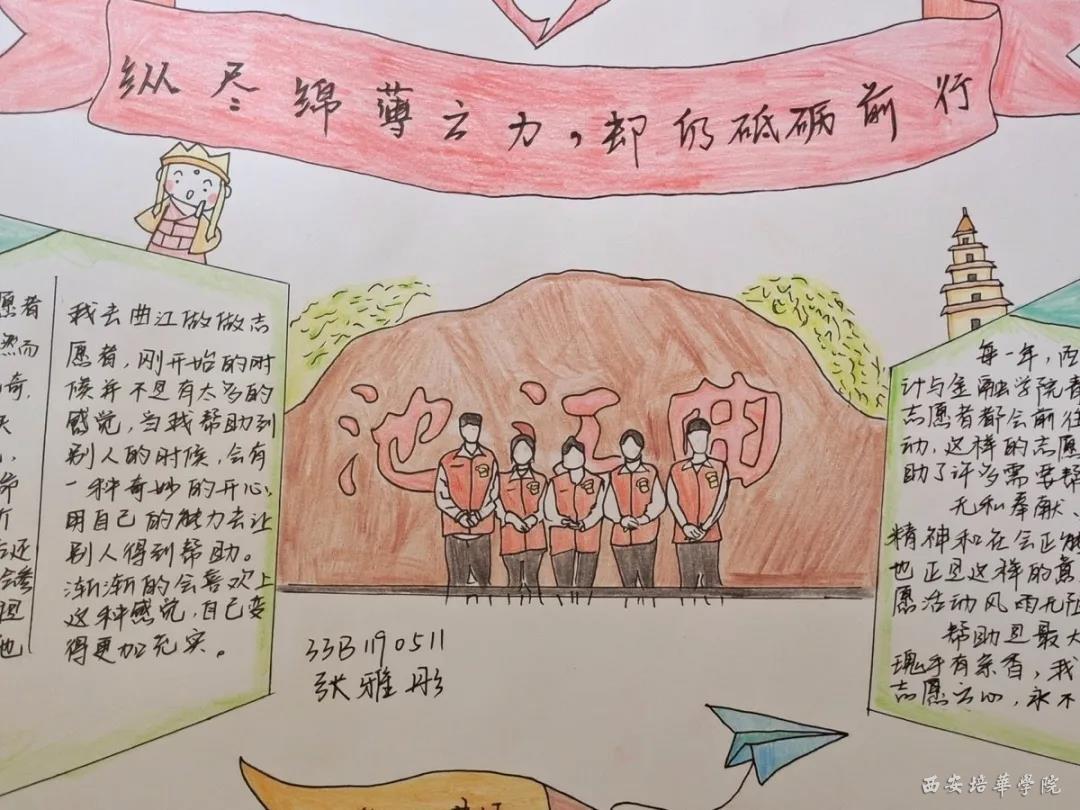 纵尽绵薄之力，却仍砥砺前行
愿者
然而
奇，
后还
但
他
我去曲江做做志
愿者，刚开始的时
候并不是有太多的
感觉，当我帮助到
别人的时候，会有
一种奇妙的开心，
用自己的能力去让
别人得到帮助。
渐渐的会喜欢上
这种感觉，自己变
得更加充实。
池江曲
33B1190511
张雅彤
每一年，西
计与金融学院
志愿者都会前往
动，这样的志愿
助了许多需要帮
无私奉献、
精神和在会正能
也正是这样的意
愿活动风雨无阻
帮助是最大
瑰手有余香，我
志愿之心，永不
西安培華學院